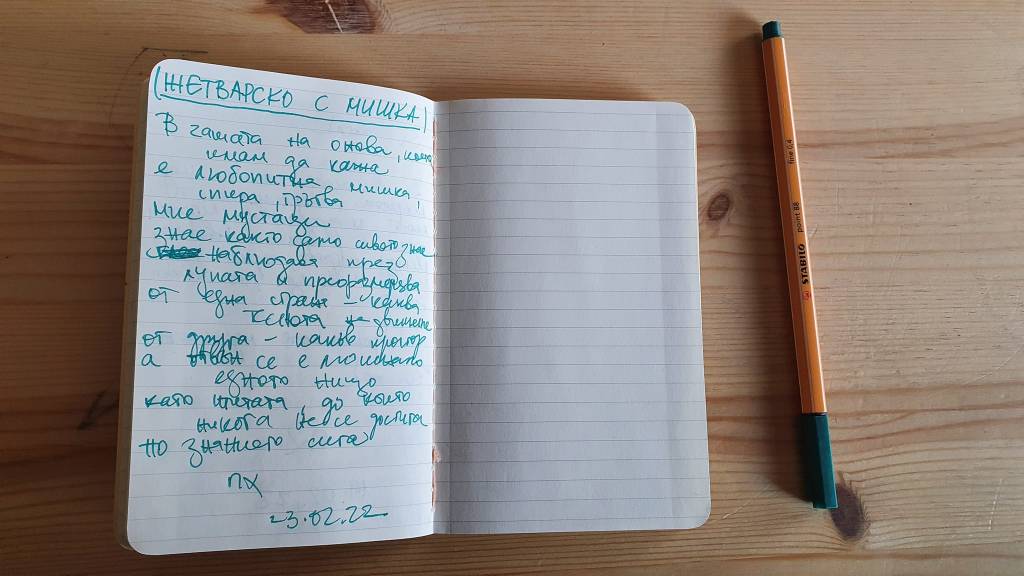 ЖЕТВАРСКО С МИШКА
В чашата на онова, което
имам да кажа
е любопитна мишка,
спира, тръгва
мие мустаци
знае както само сивото знае
наблюдава през
лупата и преоразмерява
от една страна – каква
теснота
от друга – какъв простор
а се е
едното нищо
като нещата, до които
никога не се достига
по знанието сига
ПХ
23.02.22
STABILO point 88 fine 0,4